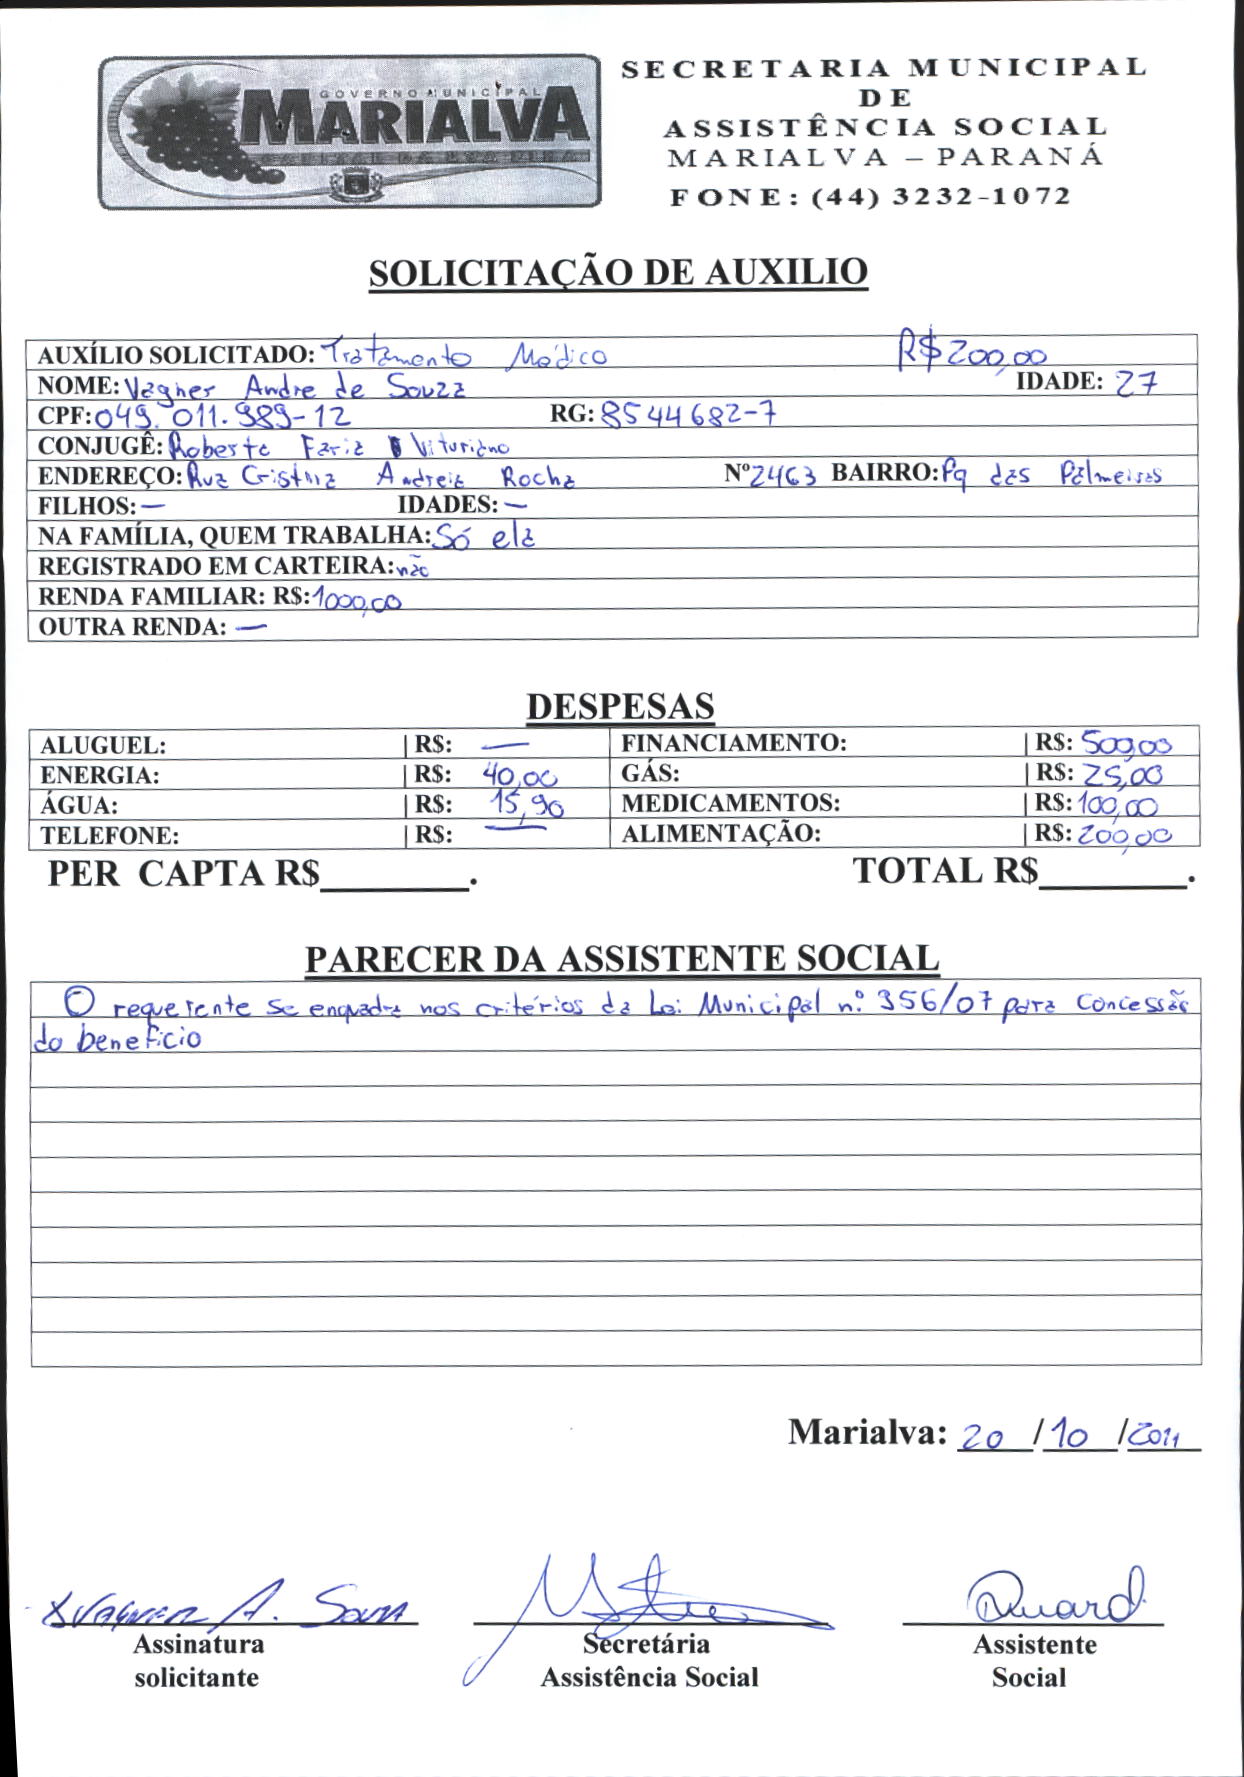 GOVERNO MUNICIPAL
MARIALVA
CAPITAL DA UVA FINA
SECRETARIA MUNICIPAL
DE
ASSISTÊNCIA SOCIAL
MARIALVA – PARANÁ
FONE: (44) 3232-1072
SOLICITAÇÃO DE AUXILIO
AUXÍLIO SOLICITADO: Tratamento Médico R$ 200,00
NOME: Vagner Andre de Souza IDADE: 27
CPF: 049.011.989-12 RG: 8544682-7
CONJUGÊ: Roberta Faria Vituriano
ENDEREÇO: Rua Cristina Andreia Rocha Nº 2463 BAIRRO: Pq das Palmeiras
FILHOS: — IDADES: —
NA FAMÍLIA, QUEM TRABALHA: Só ela
REGISTRADO EM CARTEIRA: não
RENDA FAMILIAR: R$: 1000,00
OUTRA RENDA: —
DESPESAS
ALUGUEL: | R$: — FINANCIAMENTO: | R$: 500,00
ENERGIA: | R$: 40,00 GÁS: | R$: 25,00
ÁGUA: | R$: 15,90 MEDICAMENTOS: | R$: 100,00
TELEFONE: | R$: — ALIMENTAÇÃO: | R$: 200,00
PER CAPTA R$________. TOTAL R$________.
PARECER DA ASSISTENTE SOCIAL
O requerente se enquadra nos critérios da Lei Municipal nº 356/07 para concessão
do beneficio
Marialva: 20 / 10 / 2011
Vagner A. Souza
Assinatura Secretária Assistente
solicitante Assistência Social Social